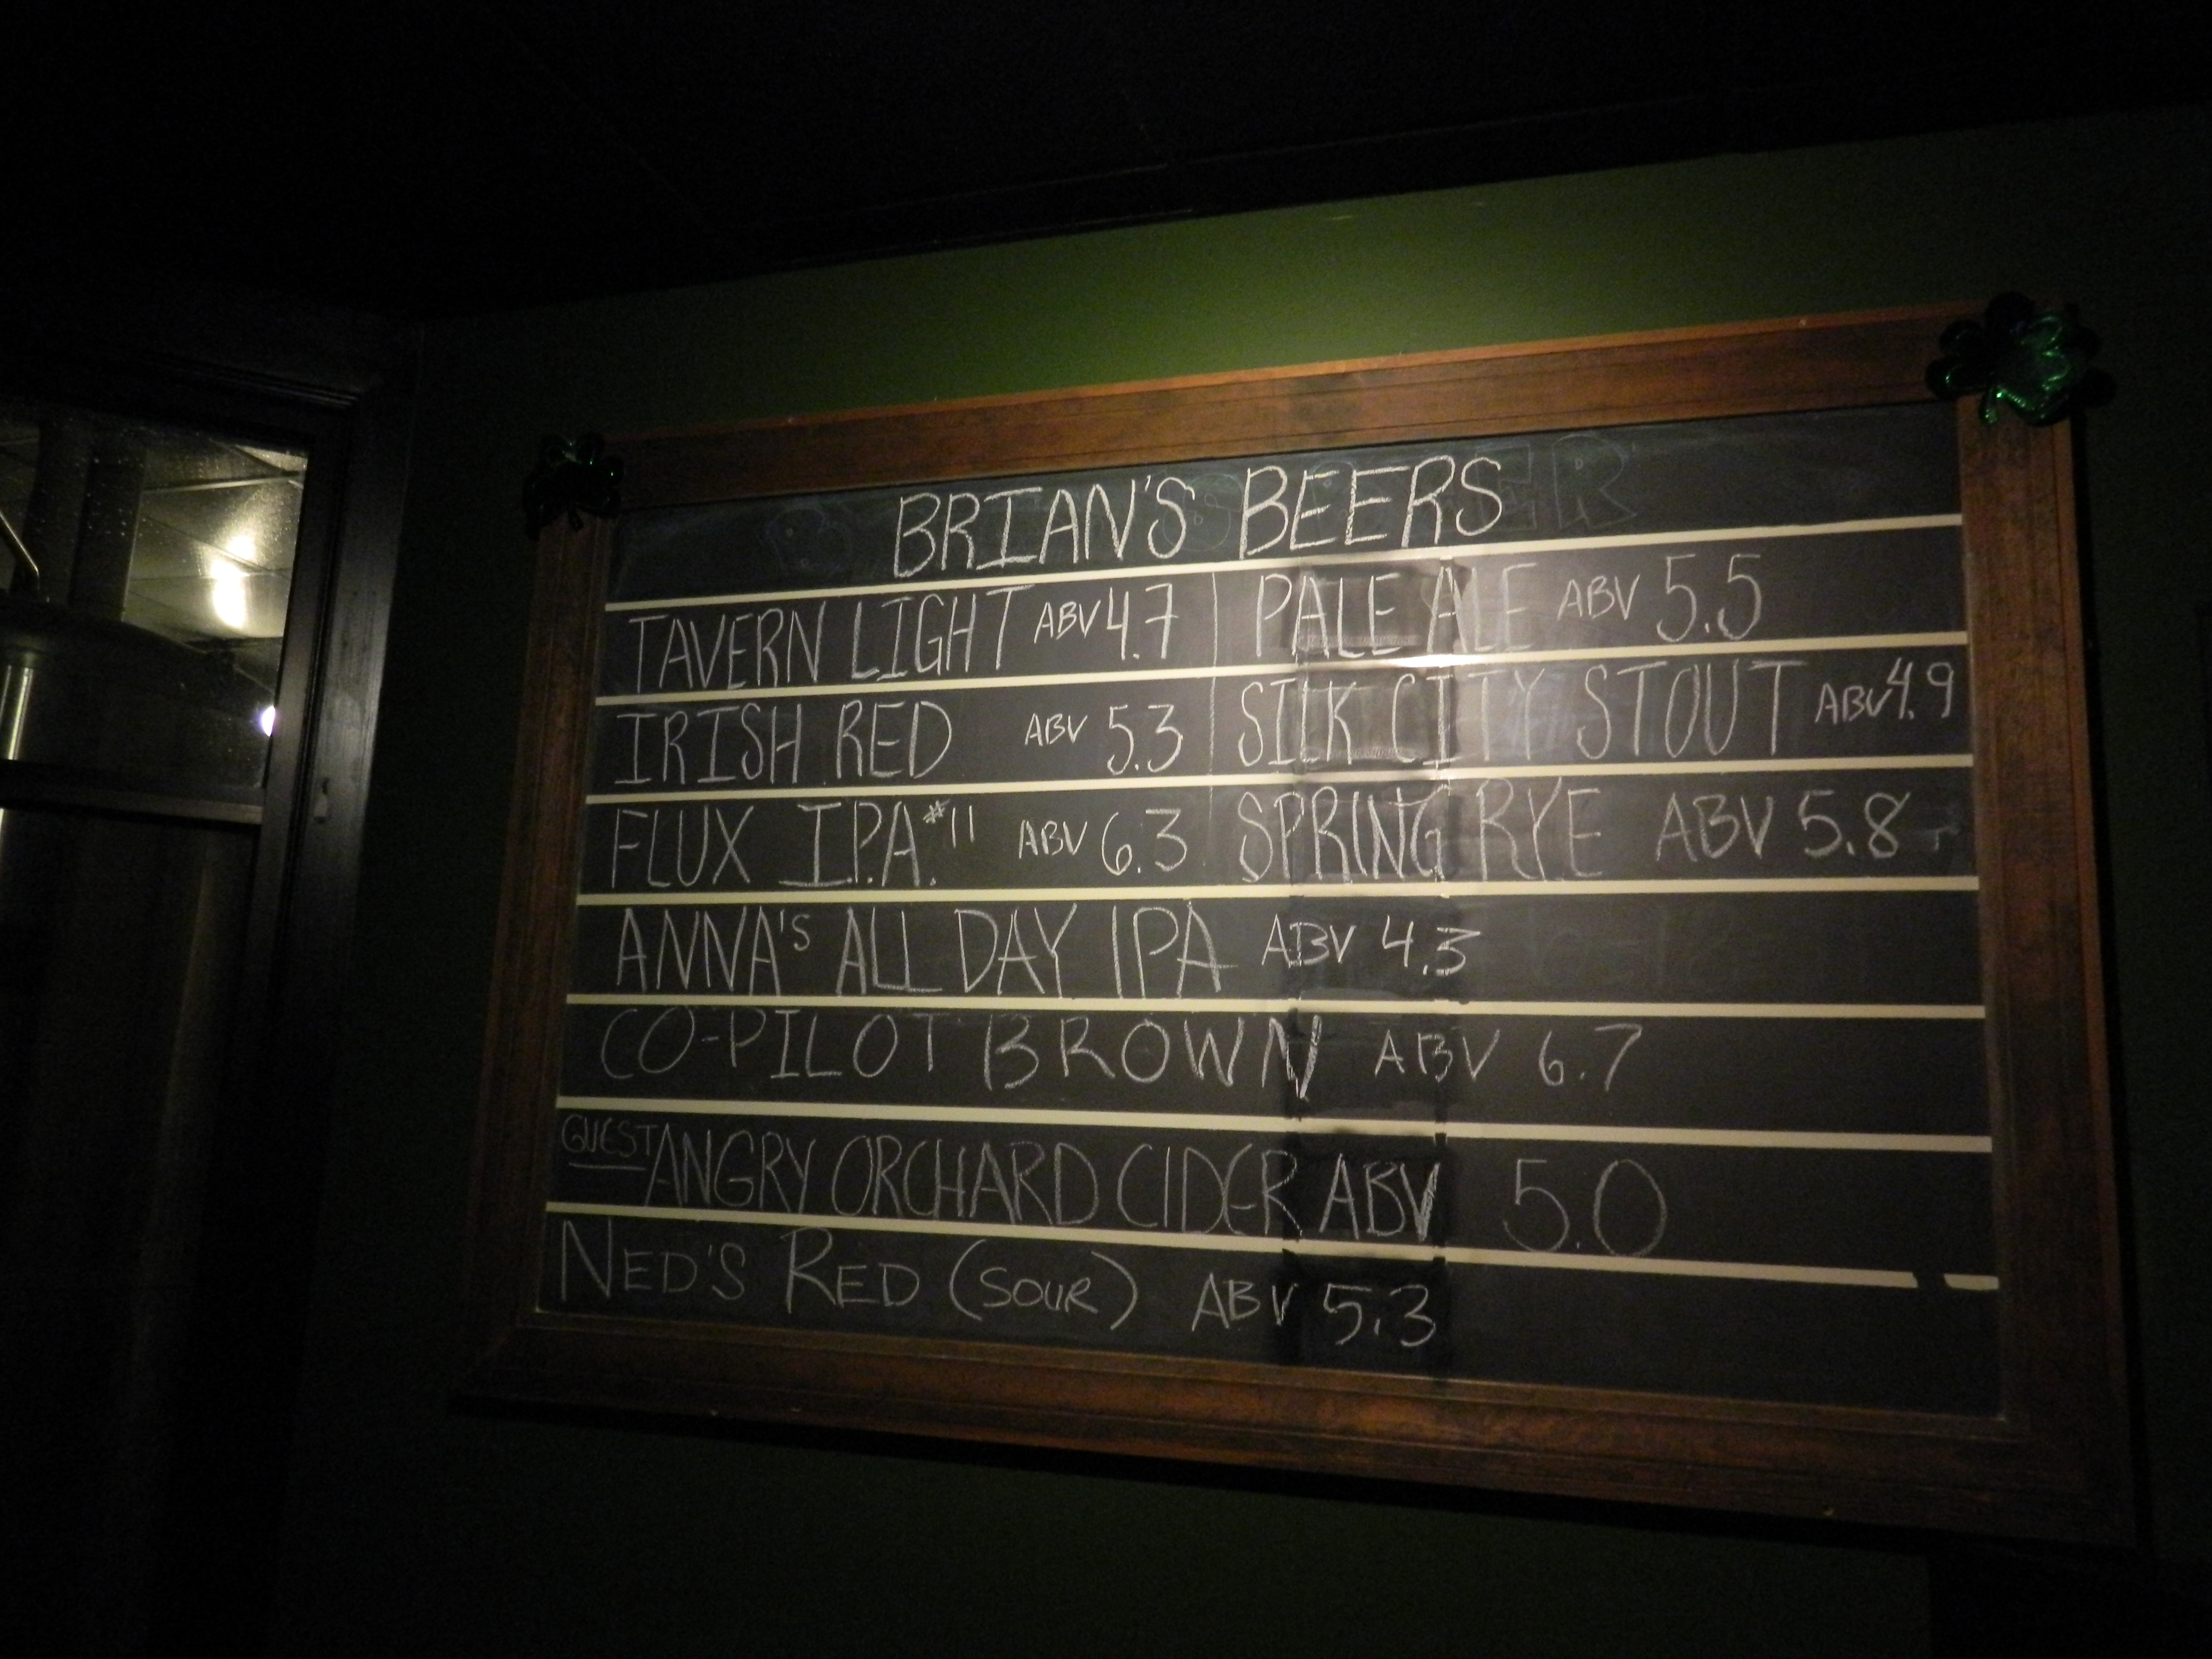 BRIAN'S BEERS
TAVERN LIGHT ABV 4.7 | PALE ALE ABV 5.5
IRISH RED ABV 5.3 | SILK CITY STOUT ABV 4.9
FLUX I.P.A. #11 ABV 6.3 SPRING RYE ABV 5.8
ANNA'S ALL DAY IPA ABV 4.3
CO-PILOT BROWN ABV 6.7
GUEST ANGRY ORCHARD CIDER ABV 5.0
NED'S RED (SOUR) ABV 5.3